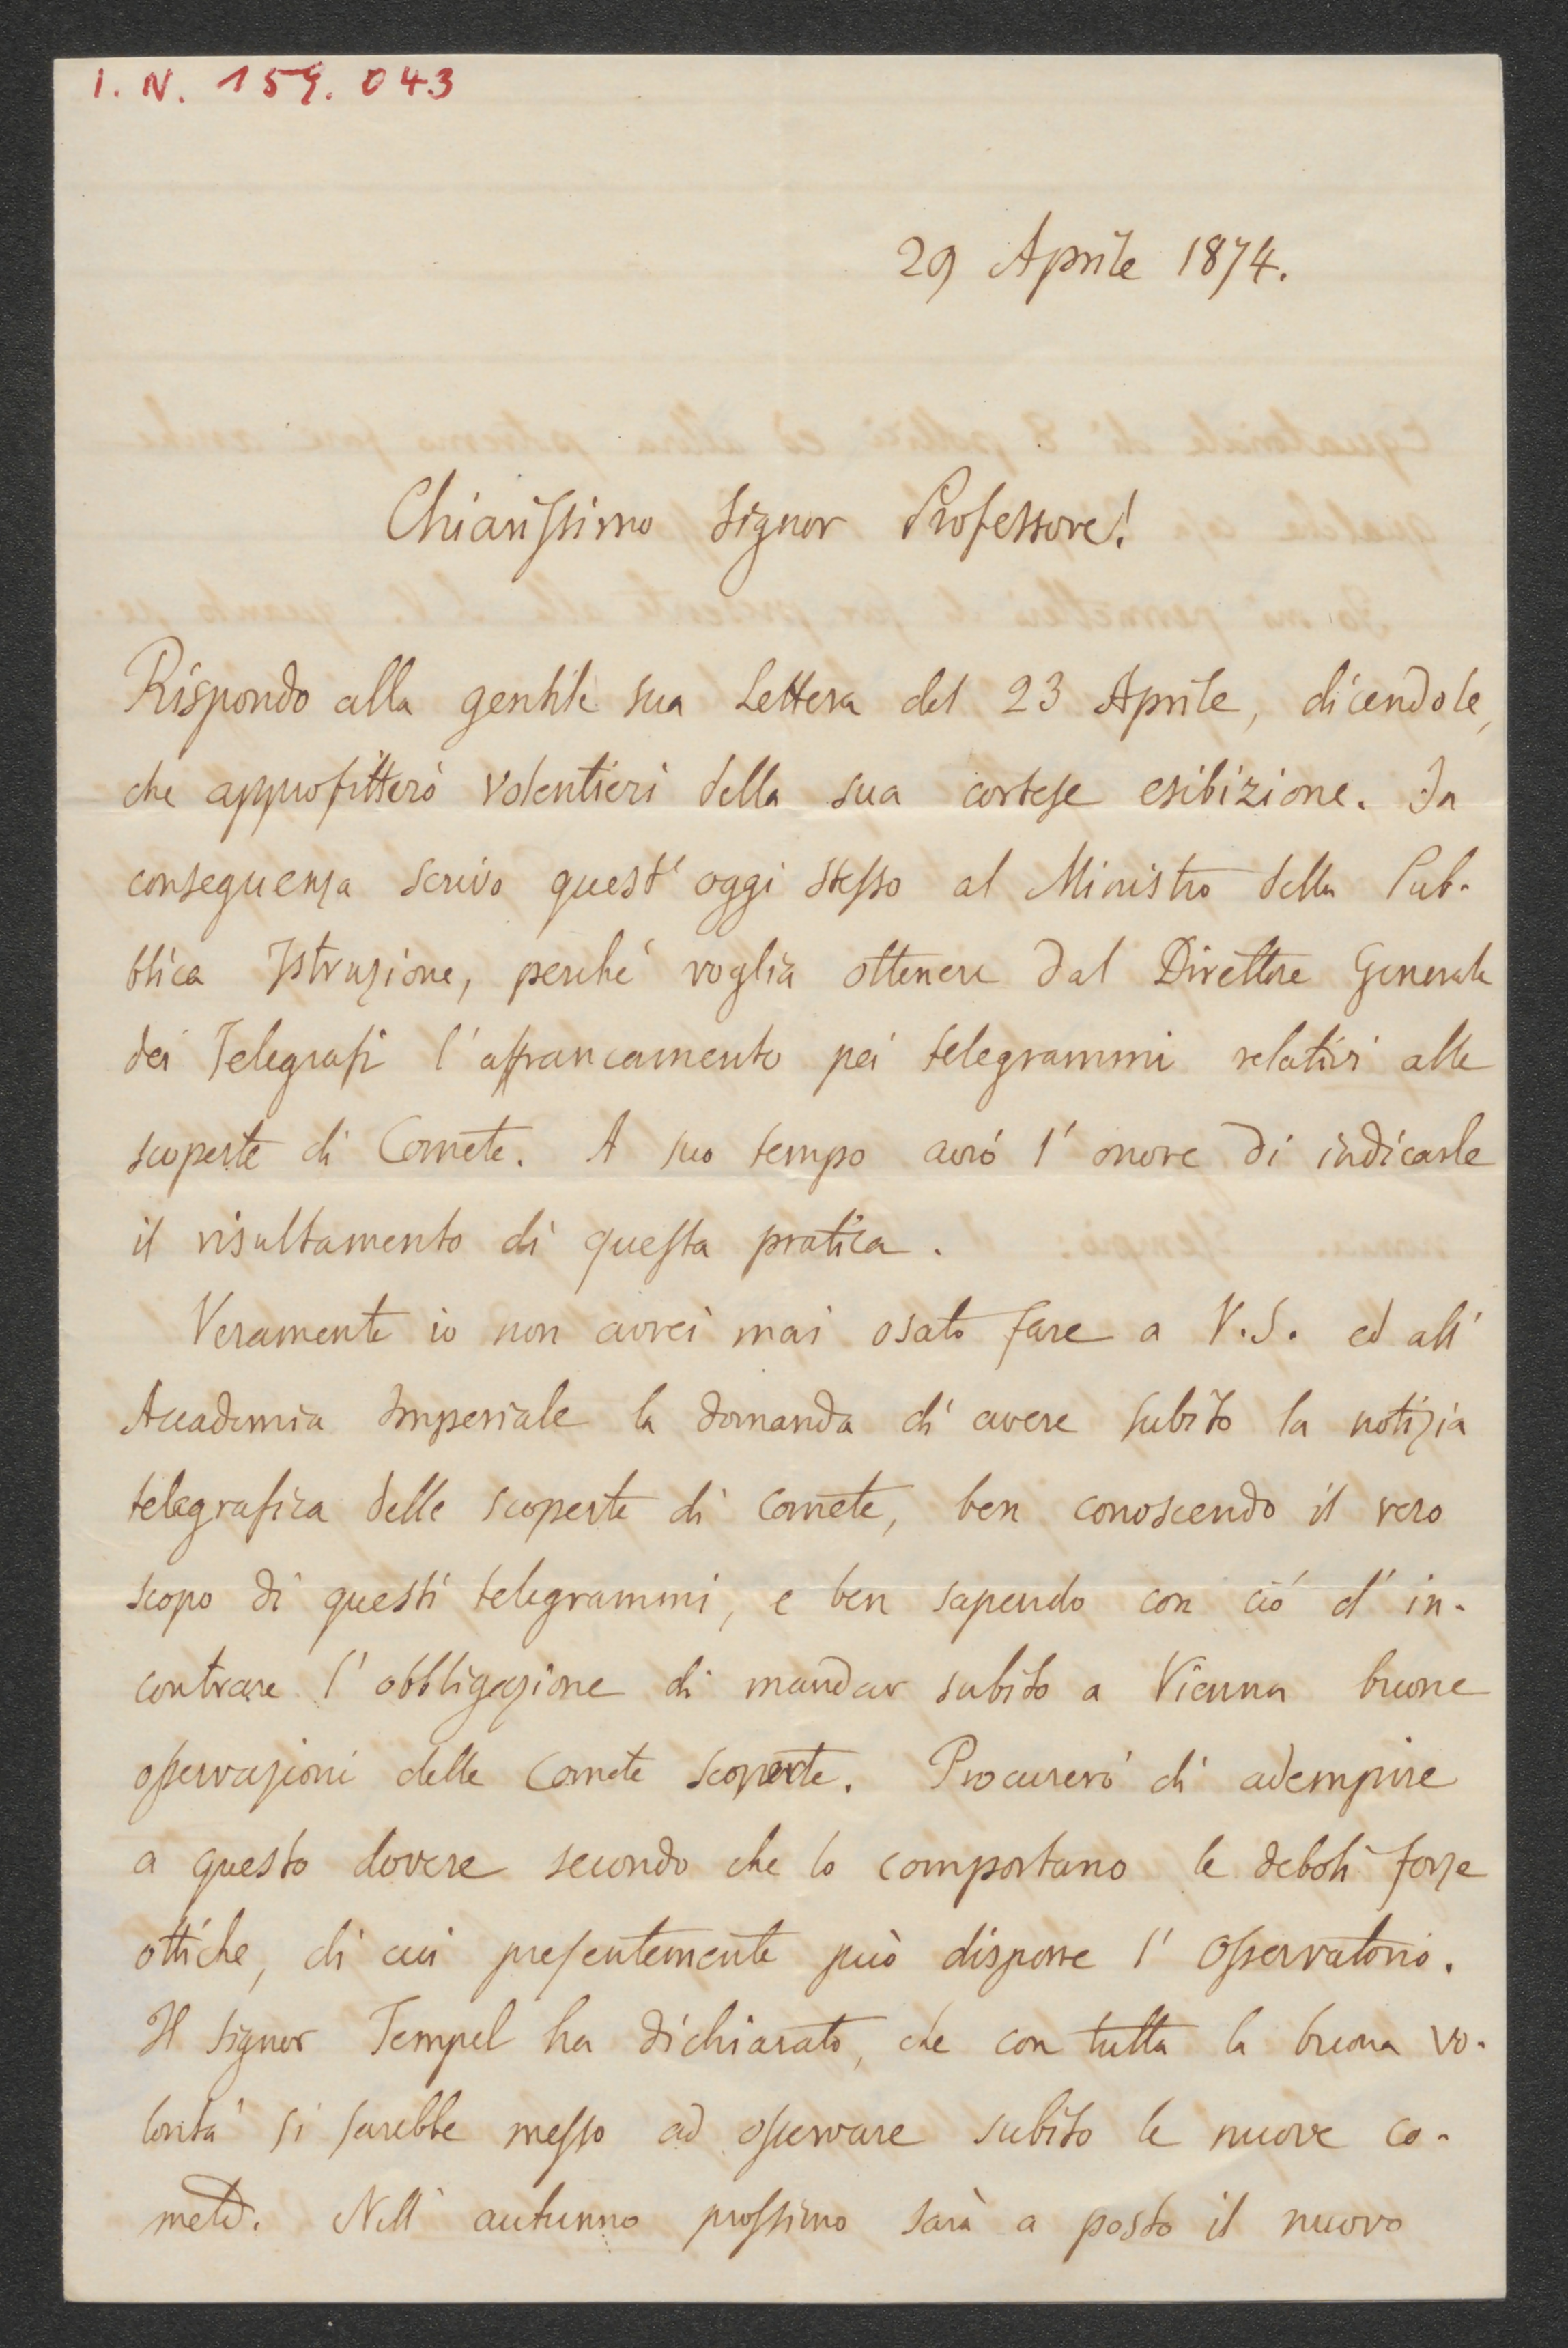 I. N. 159.043
29 Aprile 1874.
Chiarissimo Signor Professore!
Rispondo alla gentile sua Lettera del 23 Aprile, dicendole,
che approfitterò volentieri della sua cortese esibizione. In
conseguenza scrivo quest'oggi stesso al Ministro della Pub-
blica Istruzione, perchè voglia ottenere dal Direttore Generale
dei Telegrafi l'affrancamento pei telegrammi relativi alle
scoperte di Comete. A suo tempo avrò l'onore di indicarle
il risultamento di questa pratica.
Veramente io non avrei mai osato fare a V.S. ed all'
Accademia Imperiale la domanda di avere subito la notizia
telegrafica delle scoperte di comete, ben conoscendo il vero
scopo di questi telegrammi, e ben sapendo con ciò d'in-
contrare l'obbligazione di mandar subito a Vienna buone
osservazioni delle Comete scoperte. Procurerò di adempire
a questo dovere secondo che lo comportano le deboli forze
ottiche, di cui presentemente può disporre l'Osservatorio.
Il signor Tempel ha dichiarato, che con tutta la buona vo-
lontà si sarebbe messo ad osservare subito le nuove co-
mete. Nell'autunno prossimo sarà a posto il nuovo